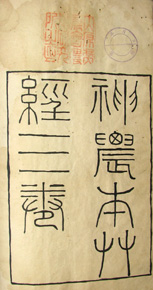 神農本艸
經三卷